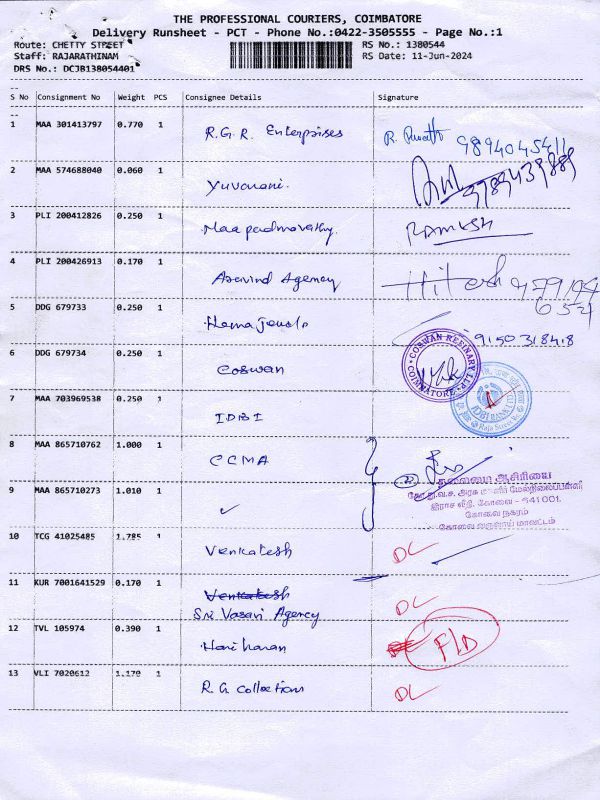 THE PROFESSIONAL COURIERS, COIMBATORE
Delivery Runsheet - PCT - Phone No.:0422-3505555 - Page No.:1
Route: CHETTY STREET
Staff: RAJARATHINAM
DRS No.: DCJB138054401
RS No.: 1380544
RS Date: 11-Jun-2024
S No Consignment No Weight PCS Consignee Details Signature
1 MAA 301413797 0.770 1 R.G.R. Enterprises 9894045411
2 MAA 574688040 0.060 1 Yuvarani.
3 PLI 200412826 0.250 1 Maapadmavathy. RAMESH
4 PLI 200426913 0.170 1 Aravind Agency Hitesh
5 DDG 679733 0.250 1 9150318418
6 DDG 679734 0.250 1 Coswan
COSWAN REFINARY LLP.
COIMBATORE
7 MAA 703969538 0.250 1 IDBI
IDBI BANK LTD
Raja Street
8 MAA 865710762 1.000 1 CCMA
9 MAA 865710273 1.010 1 ✓
தலைமை ஆசிரியை
இராச வீதி, கோவை - 641 001.
கோவை நகரம்
கோவை வருவாய் மாவட்டம்
10 TCG 41025485 1.785 1 Venkatesh DL
11 KUR 7001641529 0.170 1 Venkatesh DL
Sri Vasavi Agency
12 TVL 105974 0.390 1 Hari haran
13 VLI 7020612 1.170 1 R.G collection DL